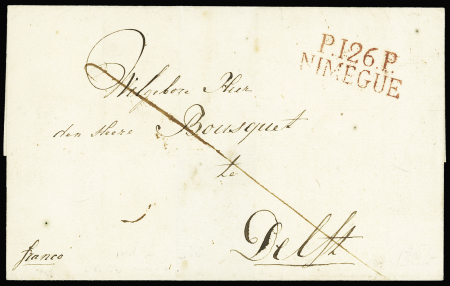 P.126.P.
NIMEGUE
Wilgebore Heer
den Heere Bousquet
te
Delft
franco